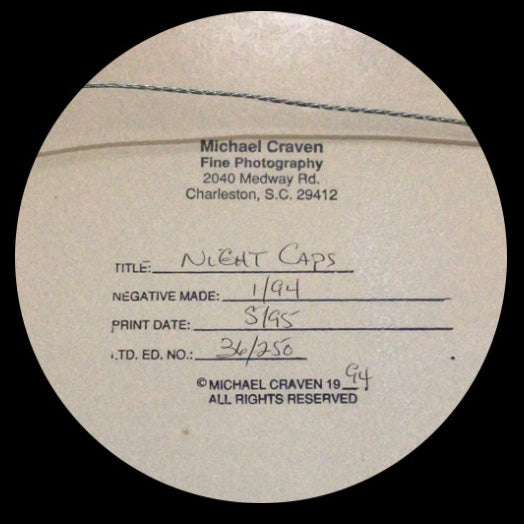 Michael Craven
Fine Photography
2040 Medway Rd.
Charleston, S.C. 29412
TITLE: NIGHT CAPS
NEGATIVE MADE: 1/94
PRINT DATE: 5/95
LTD. ED. NO.: 36/250
© MICHAEL CRAVEN 19 94
ALL RIGHTS RESERVED